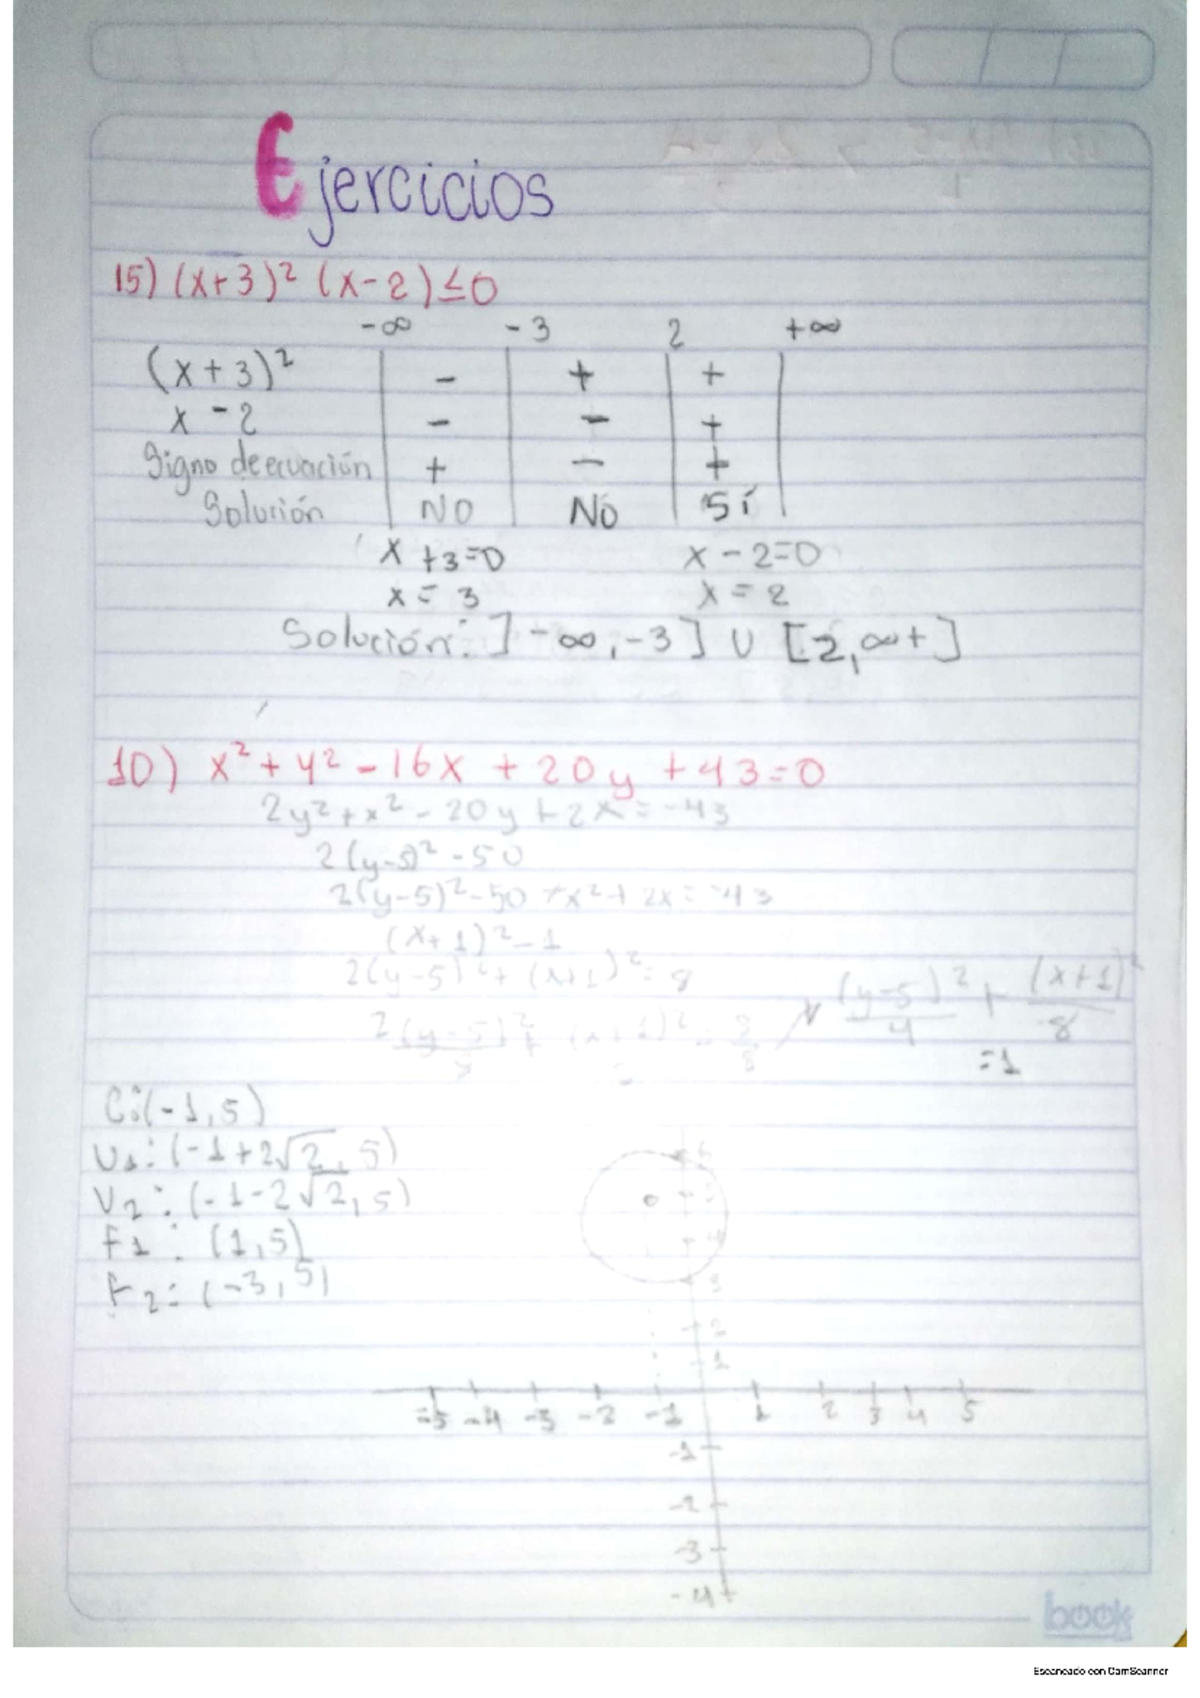 Ejercicios
15) (x+3)² (x-2)≤0
-∞ -3 2 +∞
(x+3)² - + +
x-2 - - +
Signo de ecuación + - +
Solución NO NO SÍ
x+3=0 x-2=0
x= 3 x=2
Solución: ]-∞,-3] ∪ [2,∞+]
10) x²+y²-16x+20y+43=0
2y²+x²-20y+2x=-43
2(y-5)²-50
2(y-5)²-50+x²+2x=-43
(x+1)²-1
2(y-5)²+(x+1)²=8
(y-5)²/4 + (x+1)²/8
=1
C:(-1,5)
V1:(-1+2√2,5)
V2:(-1-2√2,5)
F1: (1,5)
F2:(-3,5)
3
2
1
-5 -4 -3 -2 -1 1 2 3 4 5
-1
-2
-3
-4
book
Escaneado con CamScanner